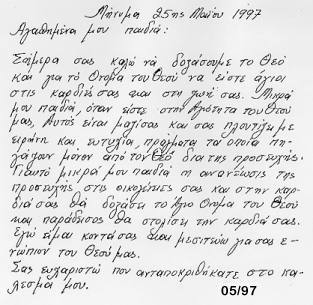 Μήνυμα 25ης Μαΐου 1997
Αγαπημένα μου παιδιά:
Σήμερα σας καλώ νά δοξάσουμε το Θεό
και γιά τό Όνομα του Θεού να είστε άγιοι
στις καρδιές σας και στη ζωή σας. Μικρά
μου παιδιά, όταν είστε στην Αγιότητα του Θεού
μας, Αυτός είναι μαζί σας και σας πλουτίζει με
ειρήνη και ευτυχία, πράγματα τα οποία πη-
γάζουν μόνον από τον Θεό δια της προσευχής.
Γι αυτό μικρά μου παιδιά η ανανέωσις της
προσευχής στις οικογένειες σας και στην καρ-
διά σας θά δοξάσει το Άγιο Όνομα του Θεού
και παράδεισος θα στολίσει την καρδιά σας.
Εγώ είμαι κοντά σας και μεσιτεύω για σας ε-
νώπιον του Θεού μας.
Σας ευχαριστώ που ανταποκριθήκατε στο κά-
λεσμα μου.
05/97